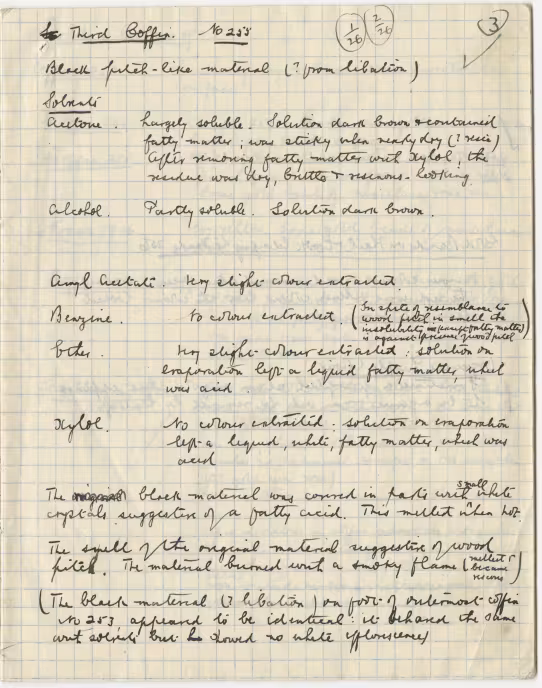 Third Coffin. No 255
1/26 2/26
3
Black pitch-like material (? from libation)
Solvents
Acetone. Largely soluble. Solution dark brown & contained
fatty matter; was sticky when nearly dry (? resin)
After removing fatty matter with xylol, the
residue was dry, brittle & resinous-looking.
Alcohol. Partly soluble. Solution dark brown.
Amyl Acetate. Very slight colour extracted.
Benzine. No colour extracted. (In spite of resemblance to
wood pitch in smell the
insolubility (except fatty matter)
is against presence of wood pitch)
Ether. Very slight colour extracted: solution on
evaporation left a liquid fatty matter, which
was acid.
Xylol. No colour extracted: solution on evaporation
left a liquid, white, fatty matter, which was
acid
The black material was covered in parts with small white
crystals suggestive of a fatty acid. This melted when hot.
The smell of the original material suggestive of wood
pitch. The material burned with a smoky flame (melted &
became
viscous)
(The black material (? libation) on foot of outermost coffin
No 253, appeared to be identical: it behaved the same
with solvents but showed no white efflorescence)